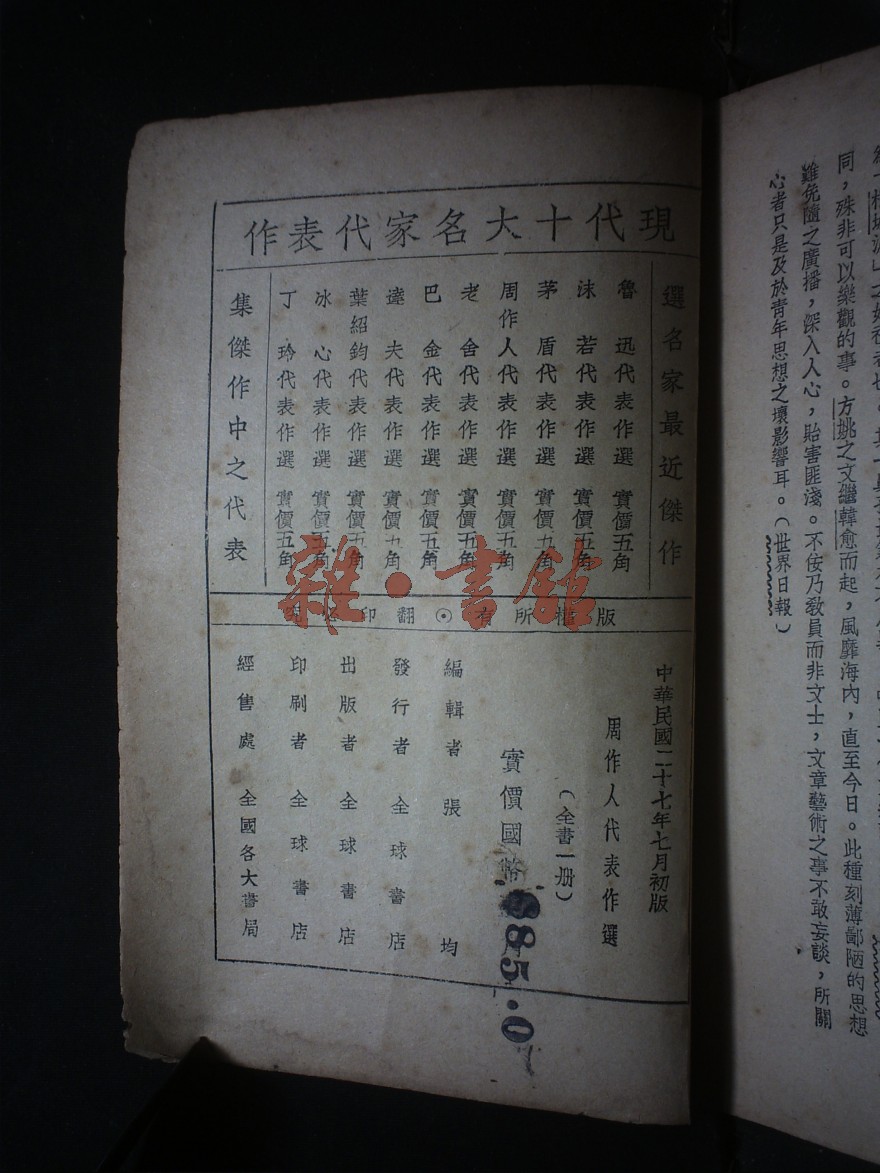 同，殊非可以樂觀的事。方姚之文繼韓愈而起，風靡海內，直至今日。此種刻薄鄙陋的思想
難免隨之廣播，深入人心，貽害匪淺。不佞乃敎員而非文士，文章藝術之事不敢妄談，所關
心者只是及於靑年思想之壞影響耳。（世界日報）
現代十大名家代表作
選名家最近傑作
魯迅代表作選 實價五角
沫若代表作選 實價五角
茅盾代表作選 實價五角
周作人代表作選 實價五角
老舍代表作選 實價五角
巴金代表作選 實價五角
達夫代表作選 實價五角
葉紹鈞代表作選 實價五角
冰心代表作選 實價五角
丁玲代表作選 實價五角
集傑作中之代表
版權所有⊙翻印必究
中華民國二十七年七月初版
周作人代表作選
（全書一冊）
實價國幣 角
85.0
編輯者 張均
發行者 全球書店
出版者 全球書店
印刷者 全球書店
經售處 全國各大書局
雜·書館